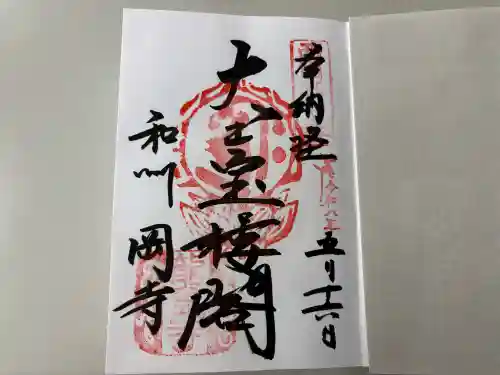 奉納経
令和八年五月十六日
大宝楼閣
和州
岡寺